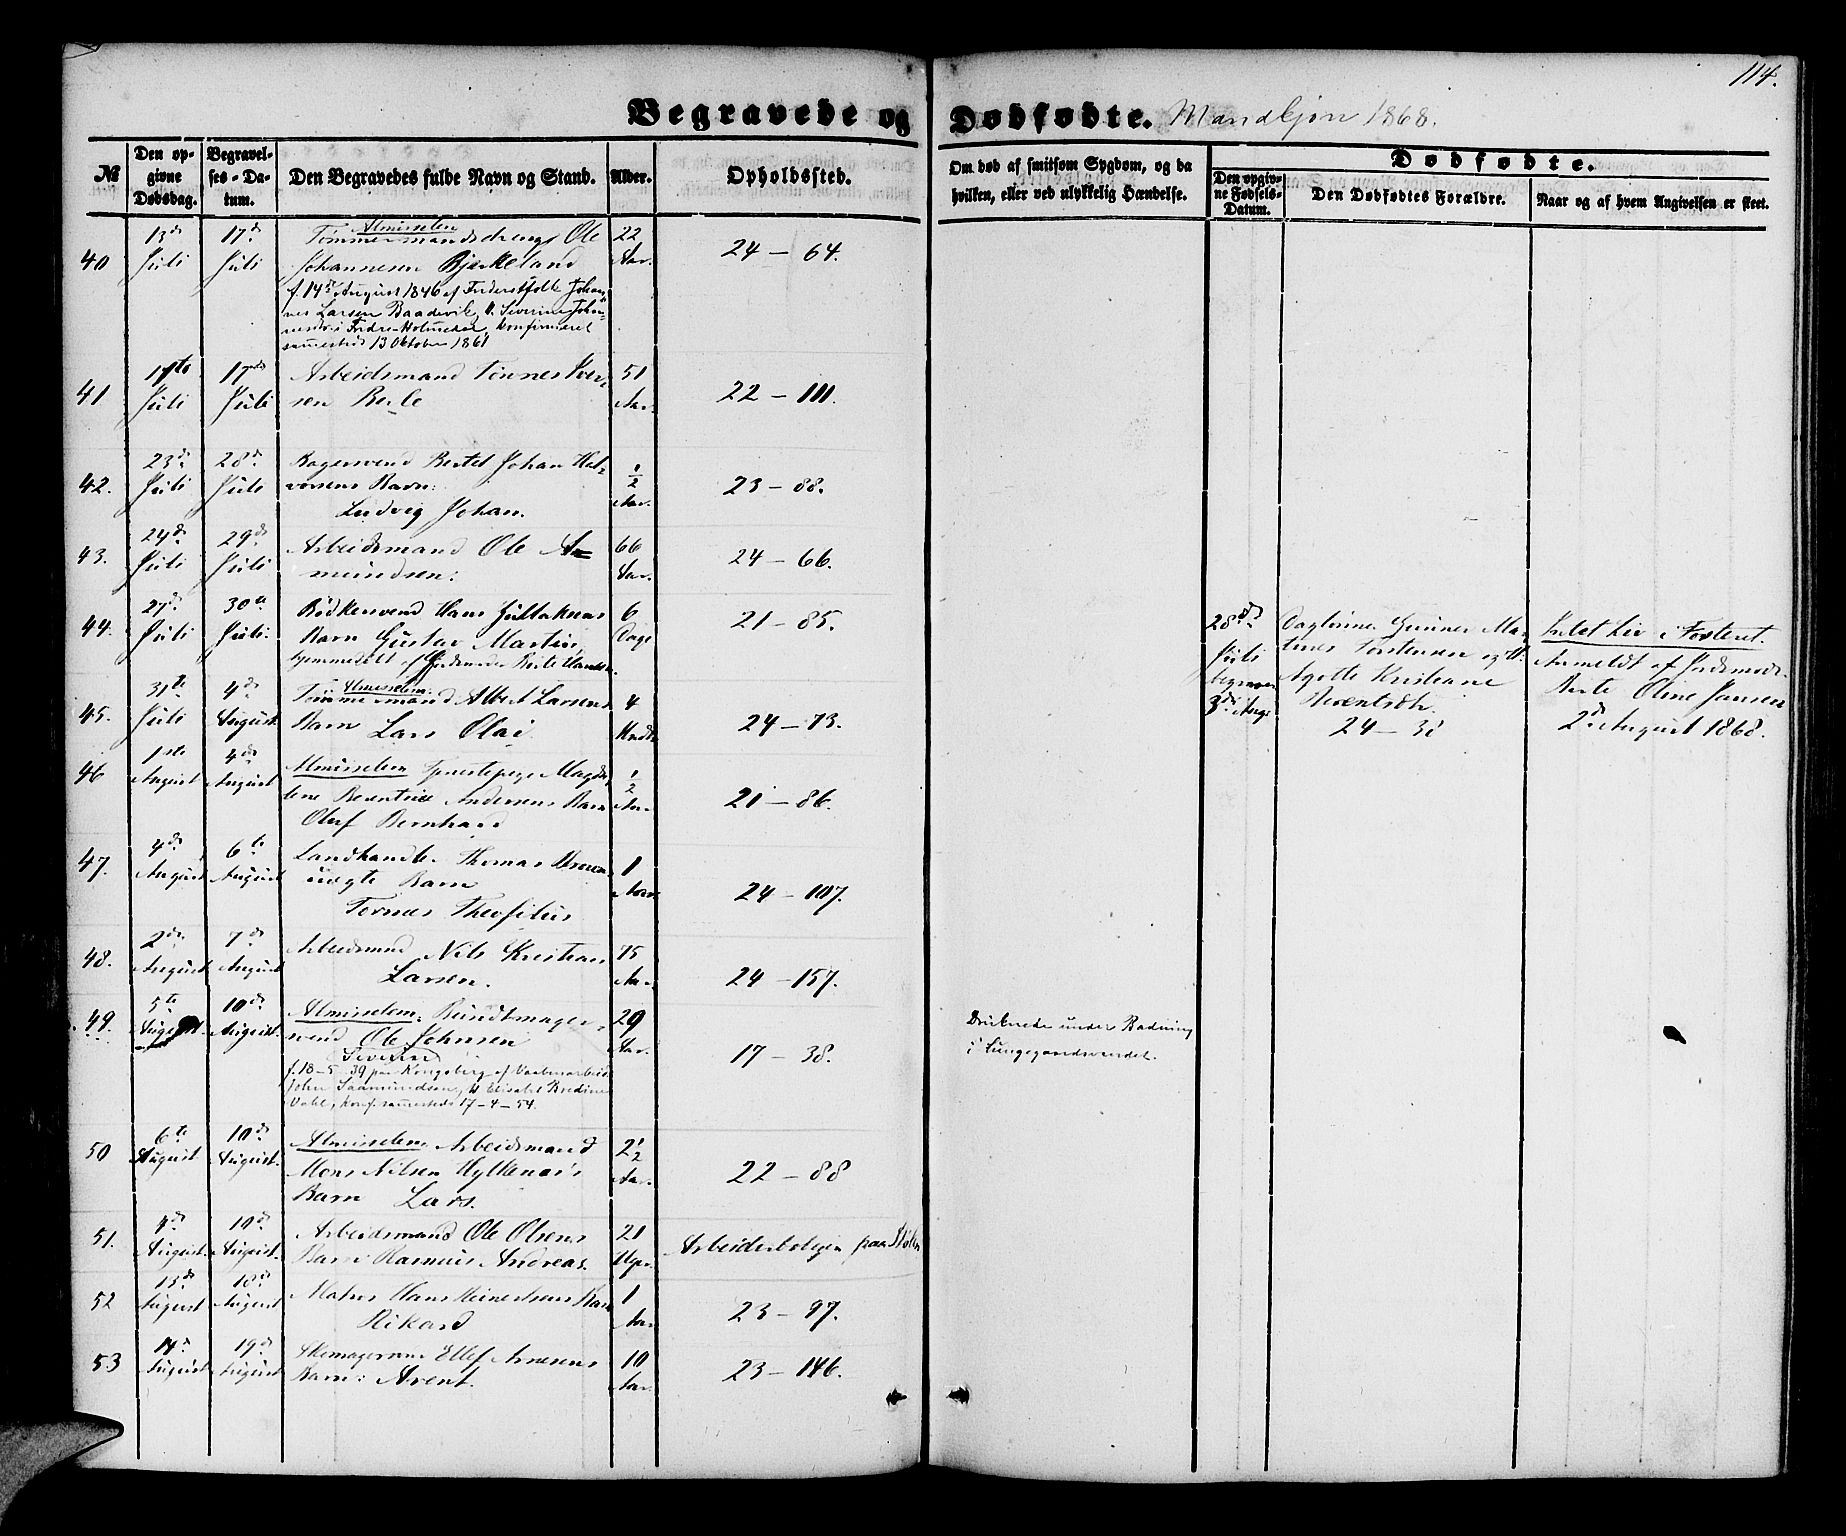 114.
Begravede og Dødfødte. Mandkjøn 1868.
№
Den opgivne Dødsdag.
Begravelses-Datum.
Den Begravedes fulde Navn og Stand.
Alder.
Opholdssted.
Om død af smitsom Sygdom, og da
hvilken, eller ved ulykkelig Hændelse.
Dødfødte.
Den opgivne Fødsels-Datum.
Den Dødfødtes Forældre.
Naar og af hvem Angivelsen er skeet.
40
13de Juli
17de Juli
Almisselem
Tømmermandsdreng Ole
Johannesen Bjerkeland
f. 14de August 1846 af Johan-
nes Larsen Baadevik, Severine Johan-
konfirmeret
13 Oktober 1861
22 Aar.
24 – 64.
41
11te Juli
17de Juli
Arbeidsmand Tønnes Iver-
sen Berle
51 Aar.
22 – 111.
42.
23de Juli
28de Juli
Bagersvend Bertel Johan Hal-
vorsens Barn:
Ludvig Johan.
1/2 Aar.
23 – 88.
43.
24de Juli
29de Juli
Arbeidsmand Ole A-
mundsen:
66 Aar.
24 – 66.
44.
27de Juli
30te Juli.
Bødkersvend Hans
Barn Gustav Martin,
hjemmedøbt af Jordmoder Berte Hansen
6 Dage
21 – 85.
28de Juli
begravet
3de Aug.
Martines Torstensen og H.
Agotte Kristiane
Berentsdtr.
24 – 38
Intet Liv i Fosteret.
Anmeldt af Jordemoder
Berte Oline Jansen
2de August 1868.
45.
31te Juli
4de August.
Almisselem.
Tømmermand Albert Larsens
Barn Lars Olai.
4
24 – 73.
46
1ste August
4de August
Almisselem Tjenestepige Magda-
lene Berentine Andersens Barn
Oluf Bernhard
1/2 Aar.
21 – 86.
47.
4de August
6te August
Landhandler Thomas
uægte Barn
Tornæs Theofilus
1 Aar.
24 – 107.
48.
2den August
7de August
Arbeidsmand Nils Kristian
Larsen.
75 Aar.
24 – 157.
49.
5te August.
10de August.
Almisselem: Bundtmager-
svend Ole Johnsen
Severin
f. 18–5–39 paa Kongsberg af Vaabenarbeid.
John Saamundsen, H. Elisabet Bredine
Vahl, konf. sammesteds 17–4–54.
29 Aar.
17 – 38.
Druknede under Badning
i Lungegaardsvandet.
50
6te August
10de August.
Almisselem Arbeidsmand
Mons Nilsen Hylkenæs's
Barn Lars.
2 1/2 Aar.
22 – 88
51.
4de August.
10de August.
Arbeidsmand Ole Olsens
Barn Rasmus Andreas.
21 Uger.
Arbeiderboligen paa Stølen
52
13de August
18de August
Matros Hans Reinertsens Barn
Rikard
1 Aar.
23 – 97.
53
14de August
19de August
Skomagersvend Ellef Arnesens
Barn: Arent.
10 Aar.
23 – 146.